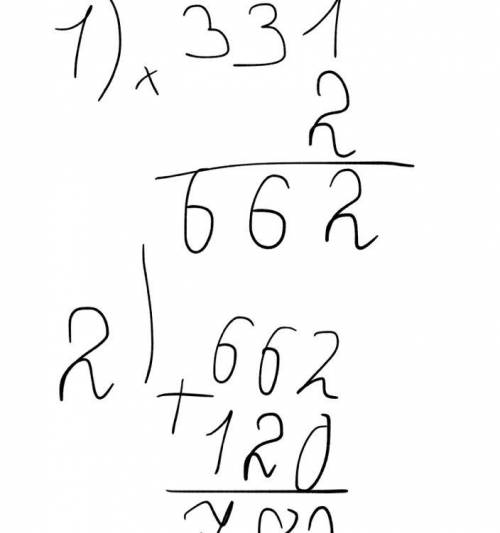 1) x 331
2
662
2) + 662
120